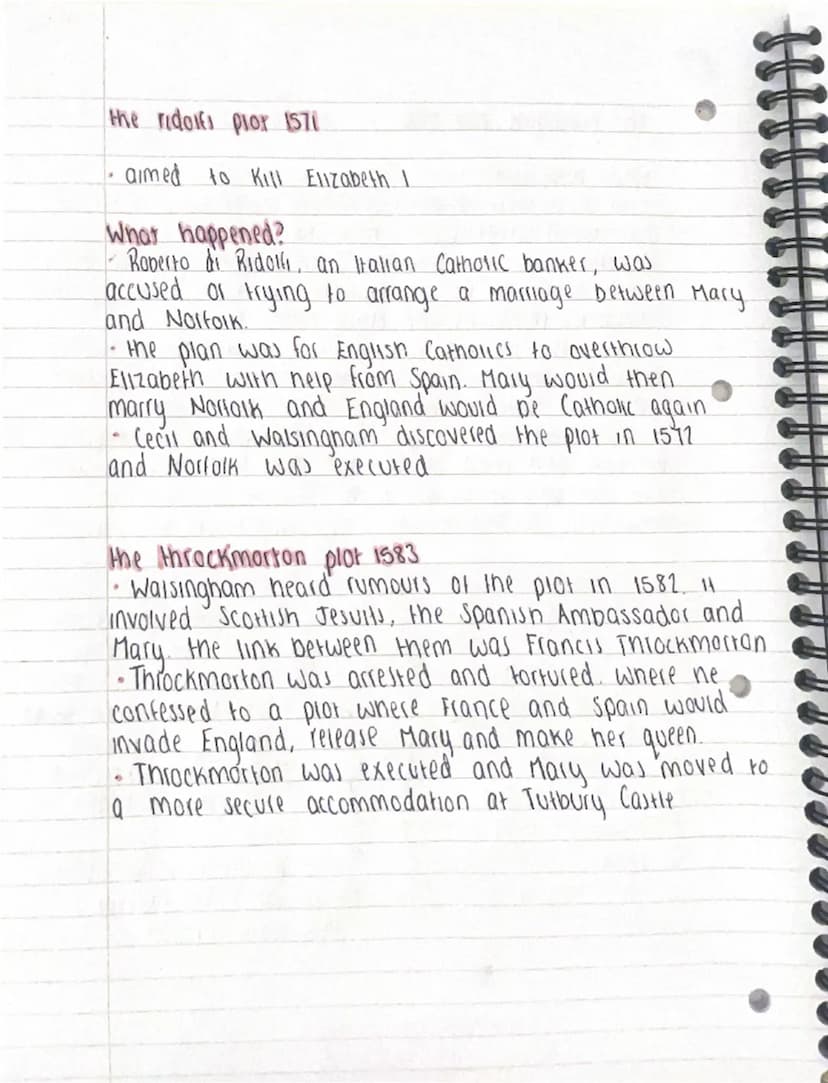 the ridolfi plot 1571
· aimed to kill Elizabeth I
What happened?
- Roberto di Ridolfi, an Italian Catholic banker, was
accused of trying to arrange a marriage between Mary
and Norfolk.
· the plan was for English Catholics to overthrow
Elizabeth with help from Spain. Mary would then
marry Norfolk and England would be Catholic again
· Cecil and Walsingham discovered the plot in 1572
and Norfolk was executed
the throckmorton plot 1583
· Walsingham heard rumours of the plot in 1582. It
involved Scottish Jesuits, the Spanish Ambassador and
Mary. the link between them was Francis Throckmorton
· Throckmorton was arrested and tortured. Where he
confessed to a plot where France and Spain would
invade England, release Mary and make her queen.
· Throckmorton was executed and Mary was moved to
a more secure accommodation at Tutbury Castle